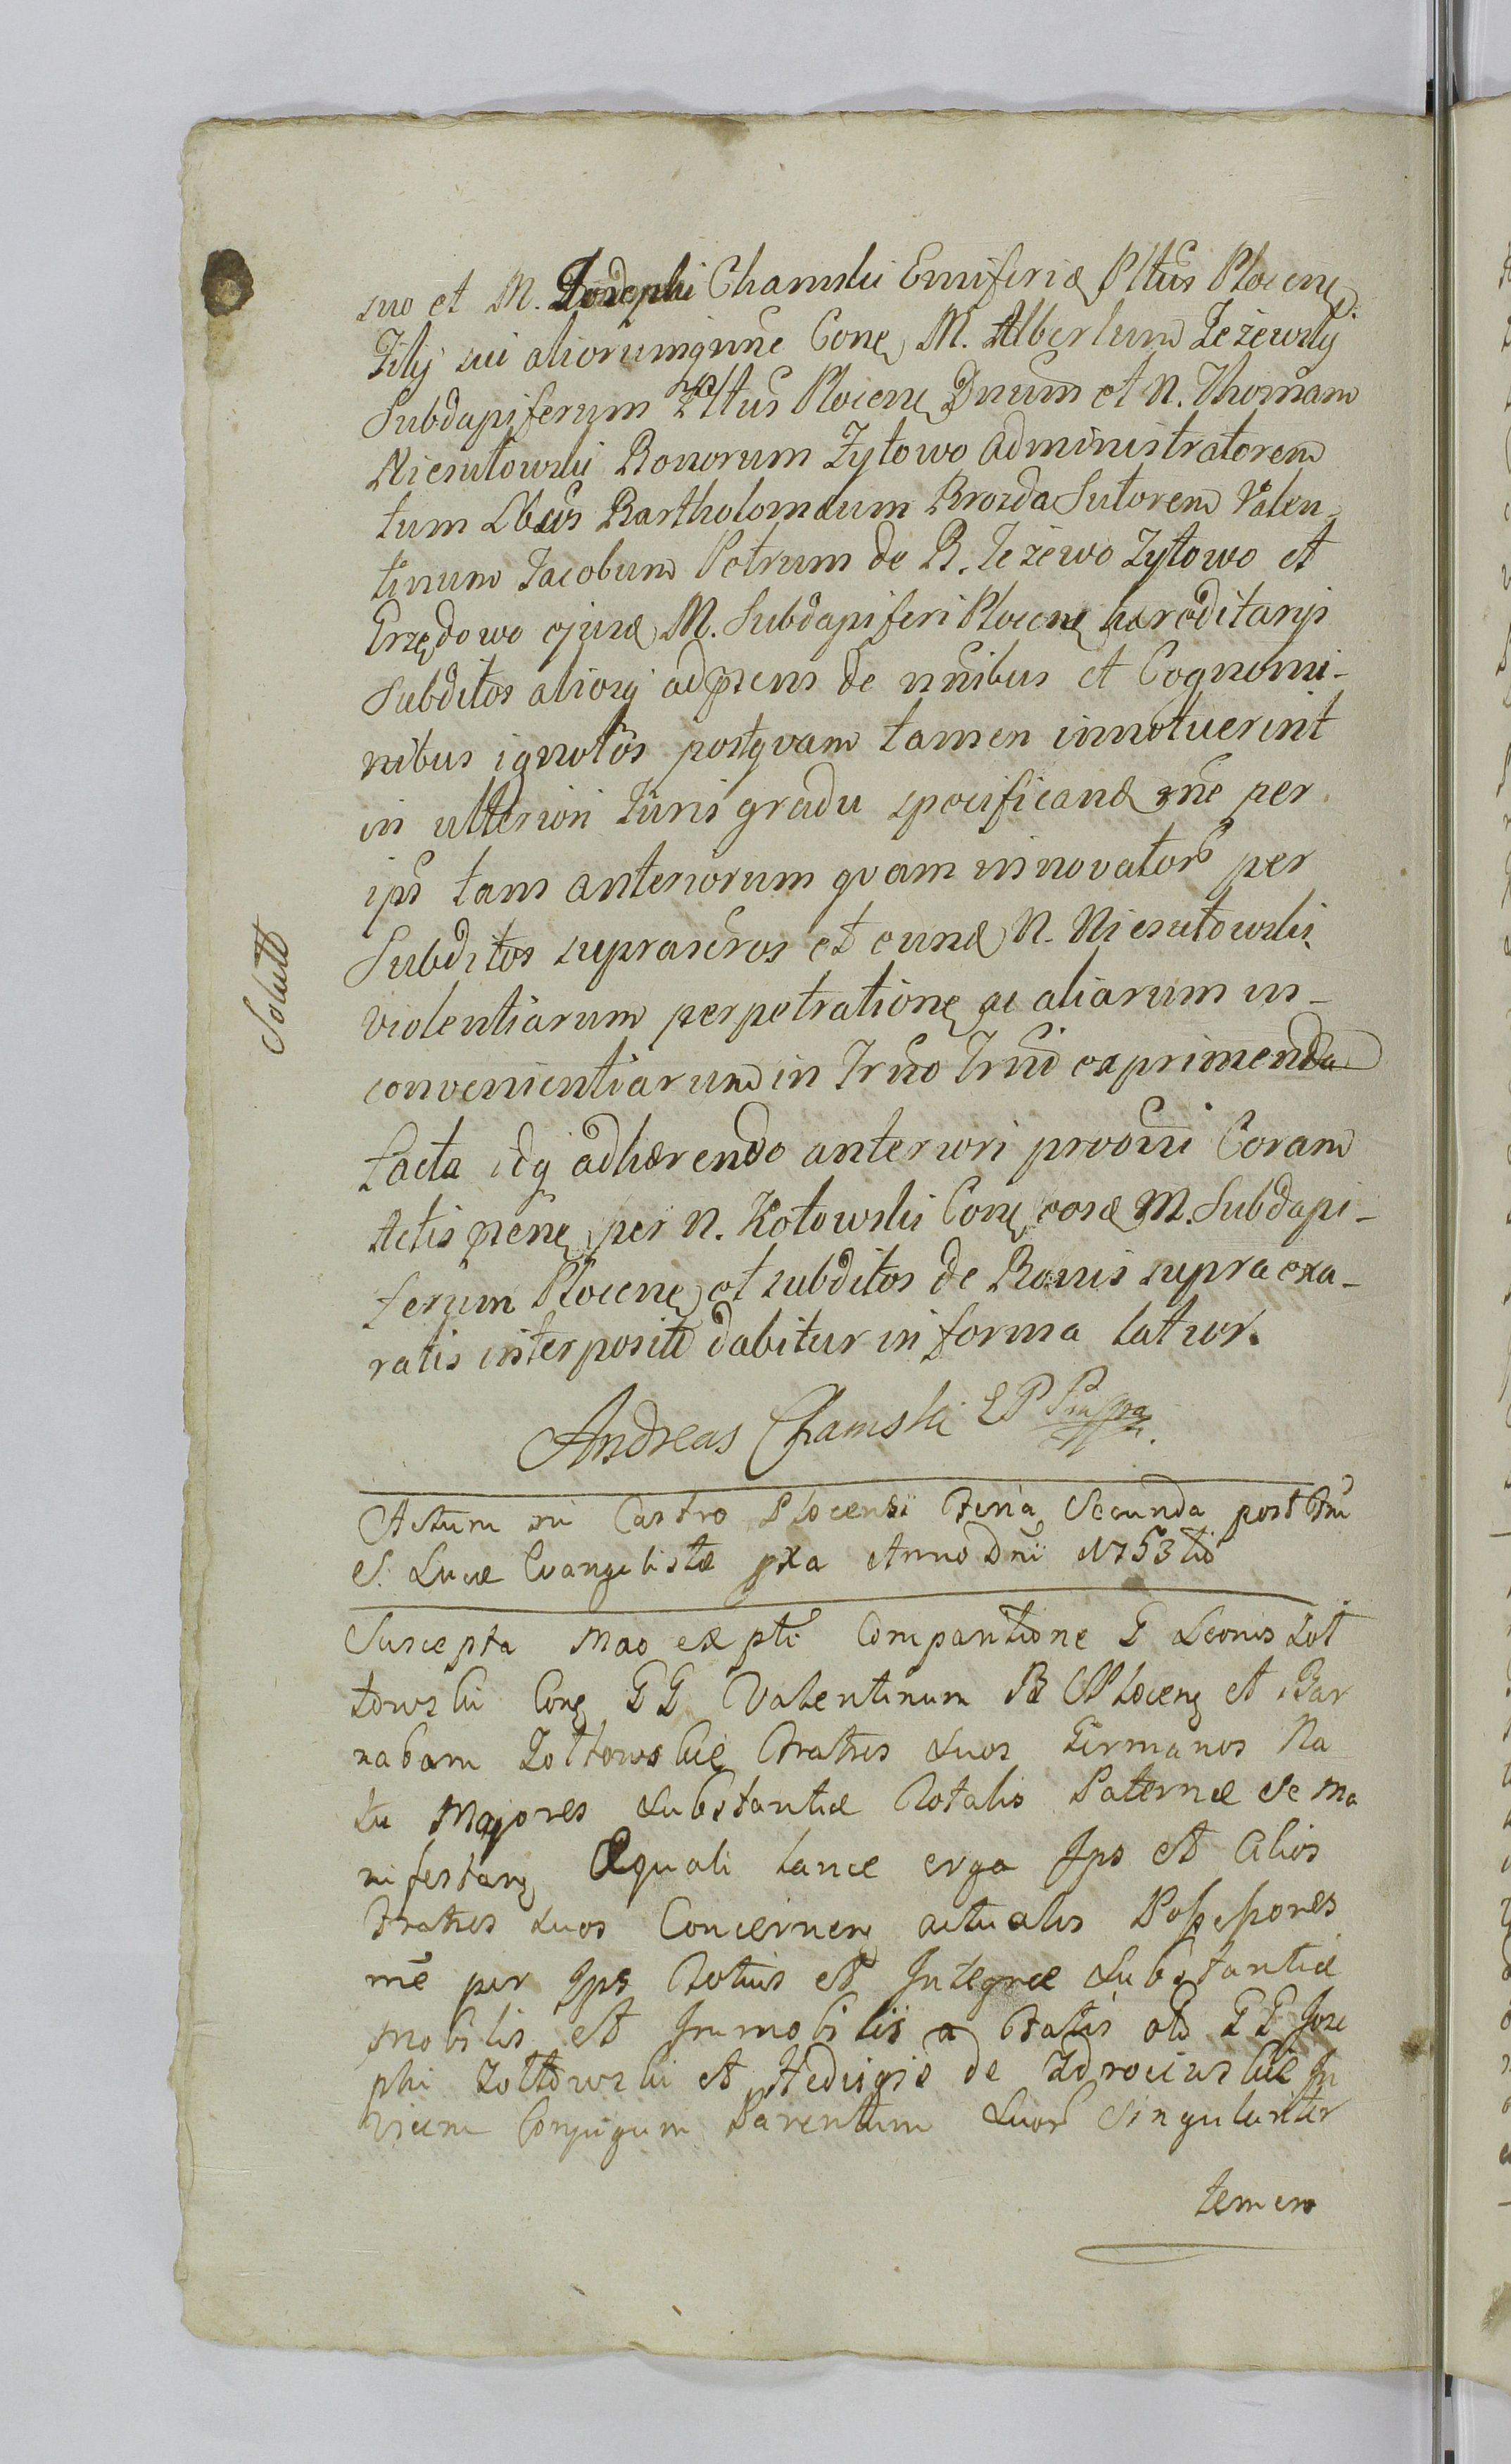 suo et M. Josephi Chamski Ensiferidæ Pltũs Plocenę
Filij sui aliorumqune Conę M. Albertum Jeżewsky
Subdapiferum Pltũs Plocenę Dnum et N. Thomam
Niesułowski Bonorum Zytowo administratorem
tum Lbũs Bartholomæum Brozda Sutorem Valen-
tinum Jacobum Petrum de B. Jeżewo Zytowo et
Grzędowo ejusd M. Subdapiferi Plocenę hæreditarijs
Subditos aliosq adpræns de nnibus et Cognomi-
nibus ignotos postquam tamen innotuerint
in ulteriori Juris gradu specificand rñe per
ips tam anteriorum quam innovator per
Subditos suprascros et eund N. Niesułowski
violentiarum perpetratione ac aliarum in-
convenientiarum in Trno Trni exprimenda
facta idq adhærendo anteriori proõni Coram
Actis præne per N. Kotowski Conę eosd M. Subdapi-
ferum Plocenę et subditos de Bonis supra exa-
ratis interposit dabitur in forma latior.
Andreas Chamski
Solutt
Actum in Castro Plocensi Feria Secunda post Ftũ
S. Lucæ Evangelistæ pxa Anno Dni 1753tio
Suscepta Mao ex pti Comparitione G Leonis Żoł
towski Conę GG Valentinum B Plocenę et Bar
nabam Zołtowskie Fratres Suos Germanos Na
tu Majores Substantiæ Totalis Paternæ Se Ma
nifestanę Æquali Lance erga Ips et Alios
Fratres Suos Concernenę actuales Possessores
rñe per Ips Totius et Integræ Substantiæ
Mobilis et Immobilis a Fatis old GG Jose
phi Zołtowski et Hedvigis de Zdrocinskie In
vicem Conjugum Parentum Suor Singulariter
temere